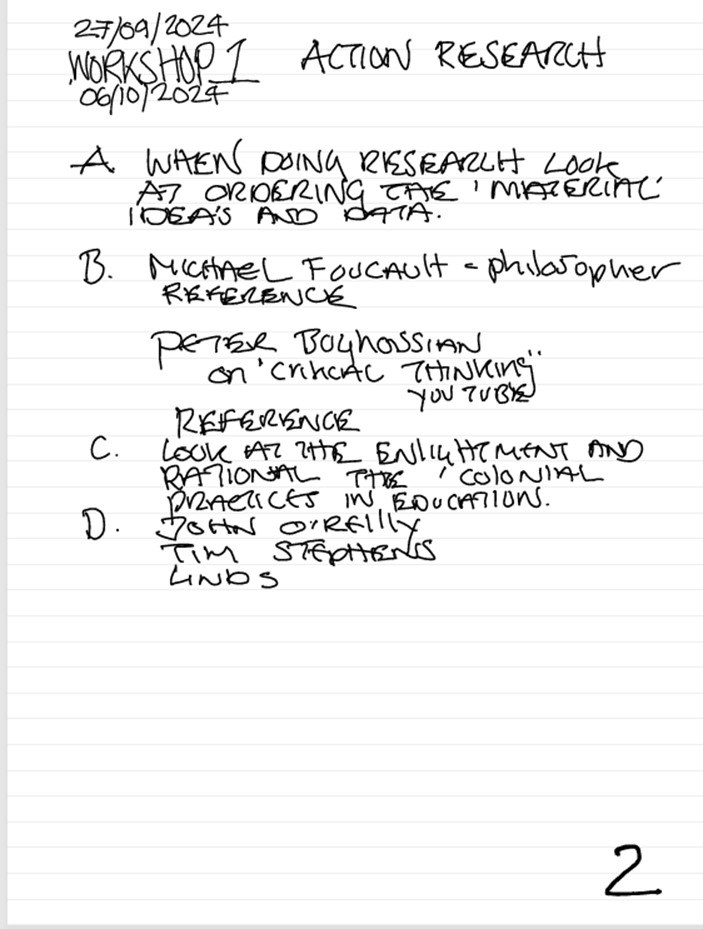 27/09/2024
WORKSHOP 1 ACTION RESEARCH
06/10/2024
A WHEN DOING RESEARCH LOOK
AT ORDERING THE 'MATERIAL'
IDEA'S AND DATA.
B. MICHAEL FOUCAULT - philosopher
REFERENCE
PETER BOGHOSSIAN
on 'CRITICAL THINKING"
YOU TUBE
REFERENCE
C. LOOK AT THE ENLIGHTMENT AND
RATIONAL THE 'COLONIAL
PRACTICES IN EDUCATION.
D. JOHN O'REILLY
TIM STEPHENS
LINDS
2